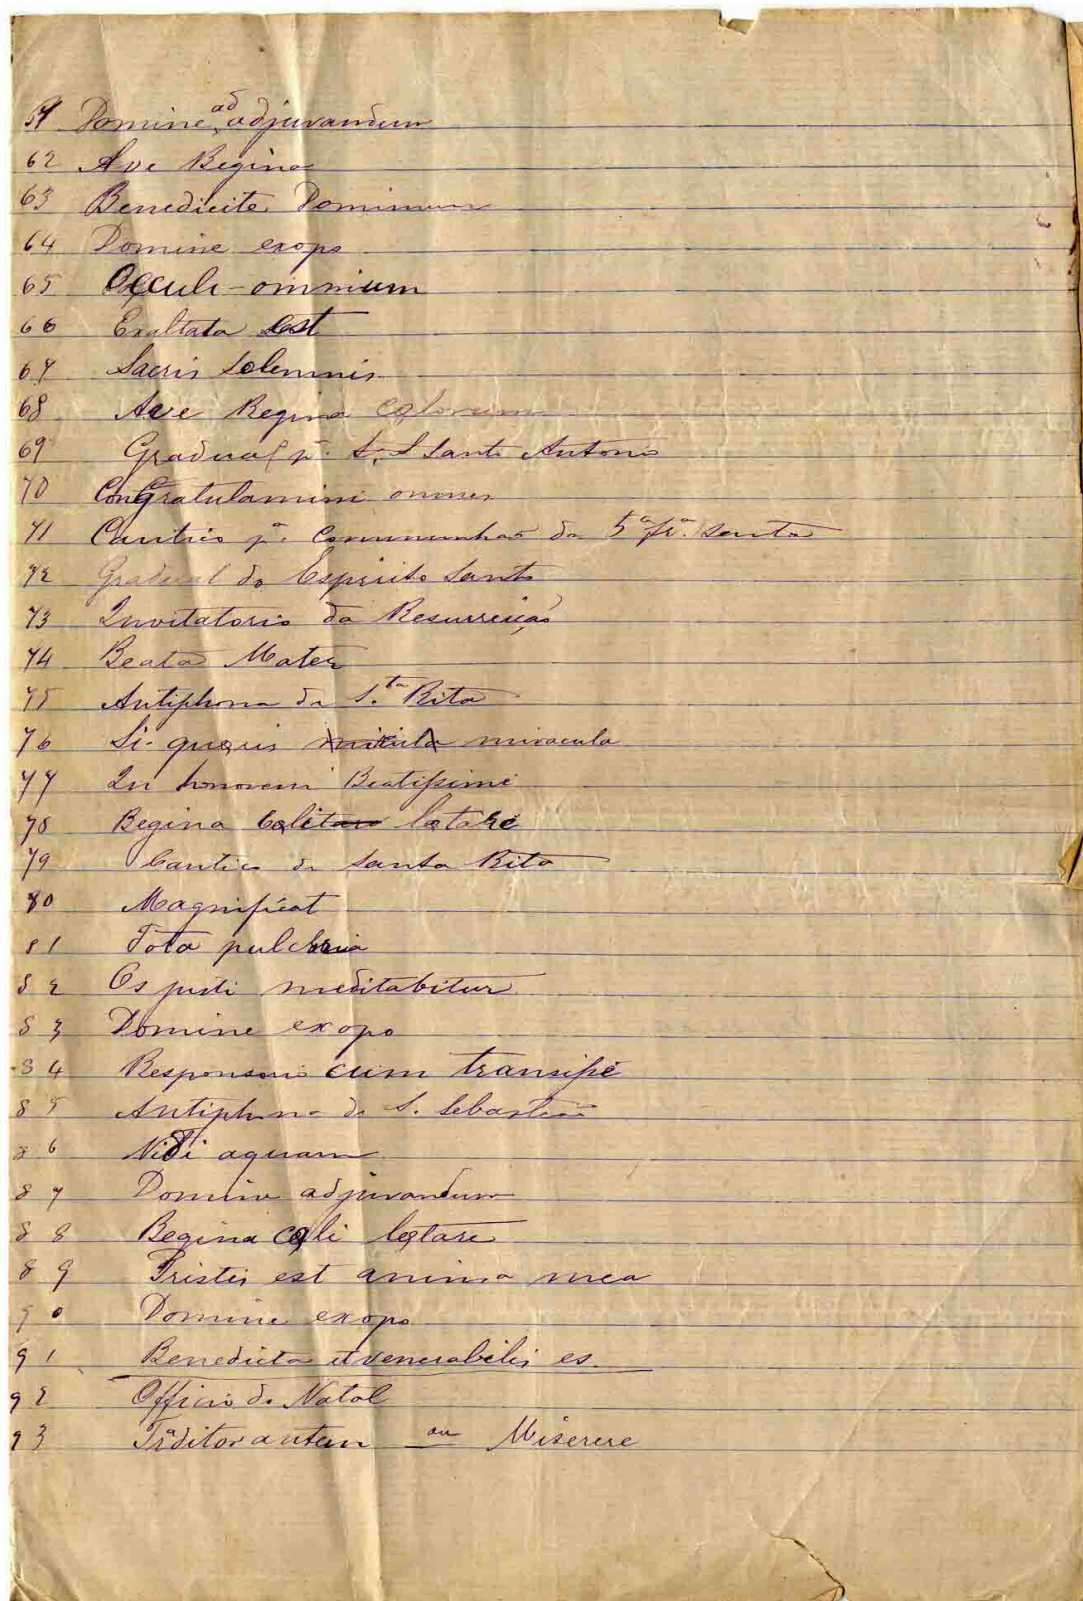 61 Domine ad adjuvandum
62 Ave Regina
63 Benedicite Dominum
64 Domine exopo
65 Occuli-omnium
66 Exaltata est
67 Sacris Solemnis
68 Ave Regina Cælorum
69 Gradual pª. S. S Santo Antonio
70 Congratulamini omnes
71 Cantico pª. Communhão da 5ª frª. Santa
72 Gradual do Espirito Santo
73 Invitatorio da Resurreição
74 Beata Mater
75 Antiphona de S.ta Rita
76 Si-quæris miracula
77 In honorem Beatissime
78 Regina Cæli lætare
79 Cantico de Santa Rita
80 Magnificat
81 Tota pulchria
82 Os justi meditabitur
83 Domine exopo
84 Responsorio cum transisse
85 Antiphona de S. Sebastião
86 Vidi aquam
87 Domine adjuvandum
88 Regina cæli lætare
89 Tristis est anima mea
90 Domine exopo
91 Benedicta et venerabilis es.
92 Officio do Natal
93 Traditor autem ou Miserere